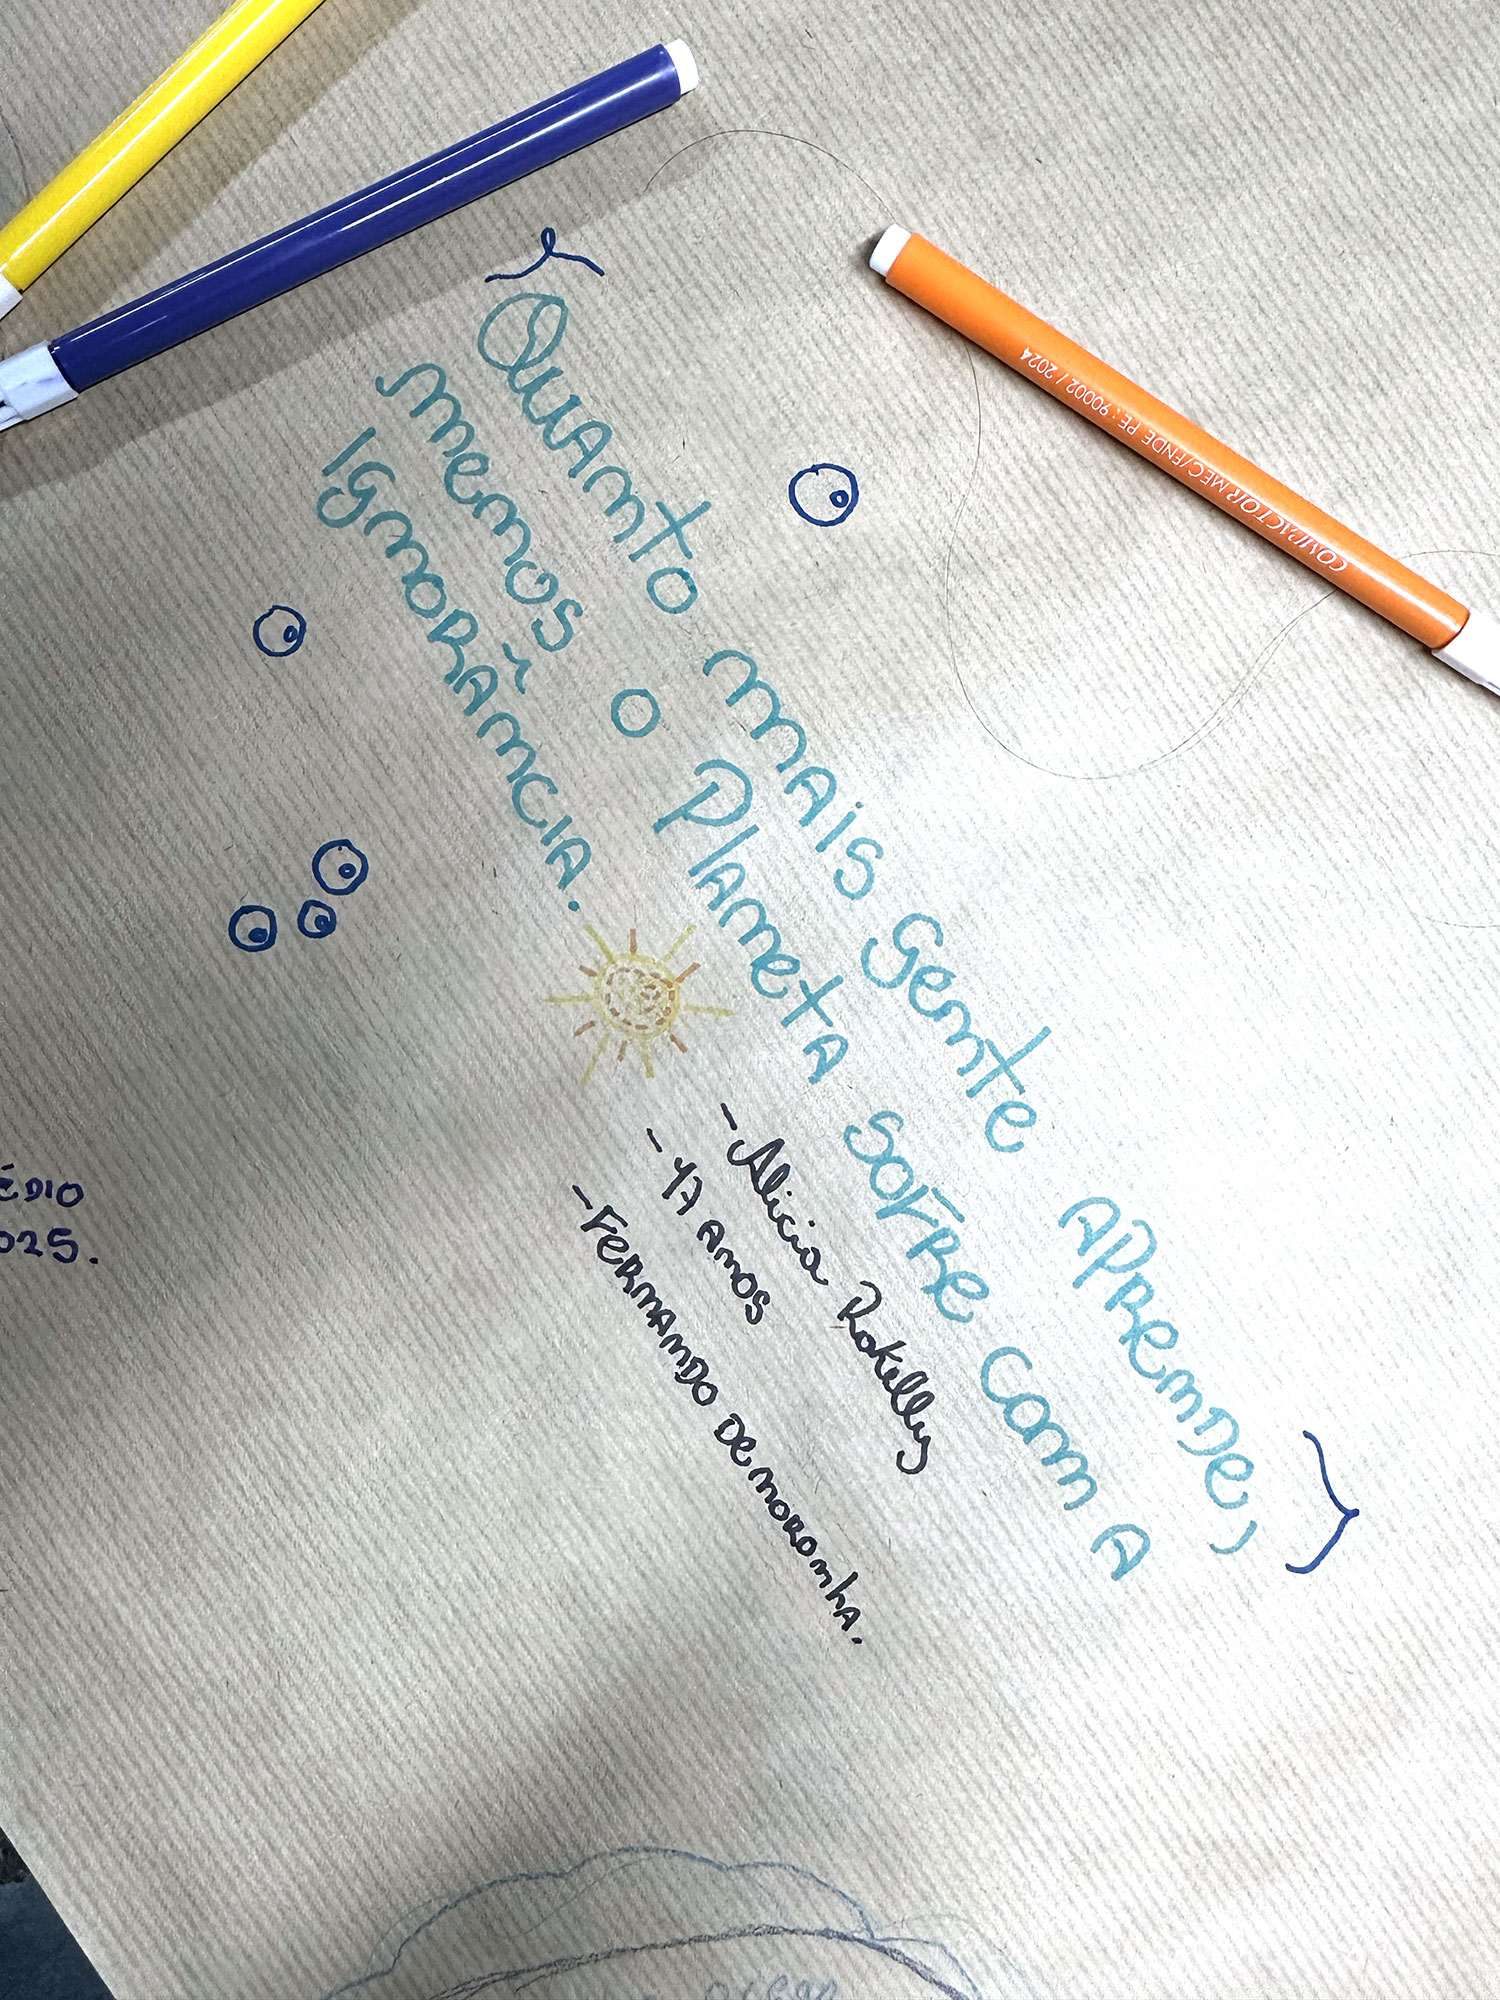 Quanto mais gente aprende,
menos o Planeta sofre com a
ignorância.
- Alicia Rokelly
- 17 anos
- Fernando de noronha.
ÉDIO
025.
COMPACTOR MEC/FNDE PE: 90002 / 2024